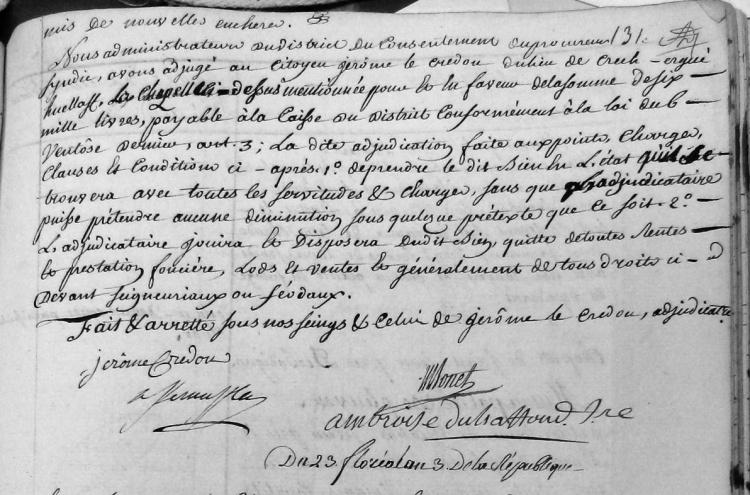 mis de nouvelles encheres.
Nous administrateurs du District du Consentement du procureur 131.
syndic, avons adjugé au Citoyen jérôme le credou du lieu de Crech - ergué
huellaff, La Chapelle ci-dessus mentionnée pour et en faveur de la somme de six
mille livres, payable à la Caisse du District Conformément à la loi du 6
Ventôse dernier, art. 3; La dite adjudication faite aux points, Charges,
Clauses et Conditions ci - après. 1.° de prendre le dit Bien En L'état qu'il se
trouvera avec toutes les servitudes & charges, sans que l'adjudicataire
puisse prétendre aucune diminution sous quelque prétexte que ce soit. 2.°
L'adjudicataire jouira et Disposera du dit Bien, quitte de toutes Rentes
et prestation foncière, Lods et ventes et généralement de tous droits ci - d
Devant Seigneuriaux ou féodaux.
Fait & arretté sous nos seings & celui de gérôme le credou, adjudicatre
jerôme Credou
Monet
ambroise
Du 23 floréal an 3. De la République